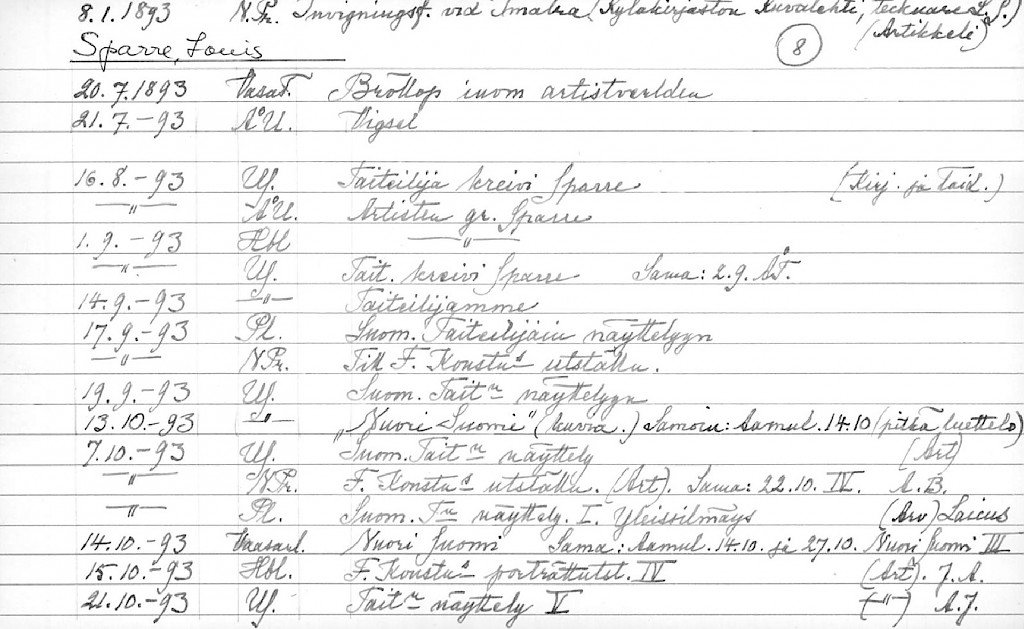 8.1.1893 N.Pr. Invigningsf. vid Imatra (Kyläkirjaston Kuvalehti, tecknare L.S.)
(Artikkeli)
Sparre, Louis 8
20.7.1893 VasaT. Bröllop inom artistverlden
21.7.-93 Å.U. Vigsel
16.8.-93 Uf. Taiteilija kreivi Sparre (Kirj. ja taid.)
—〃— Å.U. Artisten gr. Sparre
1.9.-93 Hbl —〃—
—〃— Uf. Tait. kreivi Sparre Sama: 2.9. ÅT.
14.9.-93 —〃— Taiteilijamme
17.9.-93 Pl. Suom. Taiteilijain näyttelyyn
—〃— N.Pr. Till F. Konstns utställn.
19.9.-93 Uf. Suom. Taitn näyttelyyn
13.10.-93 —〃— „Nuori Suomi" (kuvia.) Samoin: Aamul. 14.10 (pitkä luettelo)
7.10.-93 Uf. Suom. Taitn näyttely (Art)
—〃— N.Pr. F. Konstns utställn. (Art). Sama: 22.10. IV. A.B.
—〃— Pl. Suom. Tn näyttely. I. Yleissilmäys (Arv) Laicus
14.10.-93 Vaasal. Nuori Suomi Sama: Aamul. 14.10. ja 27.10. Nuori Suomi III
15.10.-93 Hbl. F. Konstns porträttutst. IV (Art). J.A.
21.10.-93 Uf. Taitn näyttely V (—〃—) A.J.